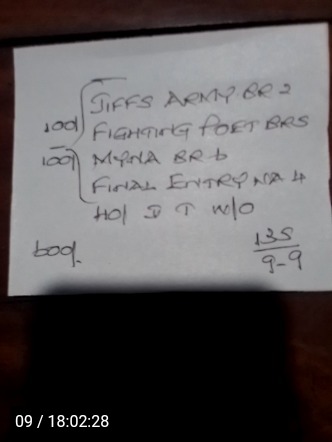 JIFFS ARMY BR 2
100/
FIGHTING POET BR5
100/
MYNA BR 6
FINAL ENTRY NA 4
40/ D T W/O
600/.
135
9-9
09 / 18:02:28